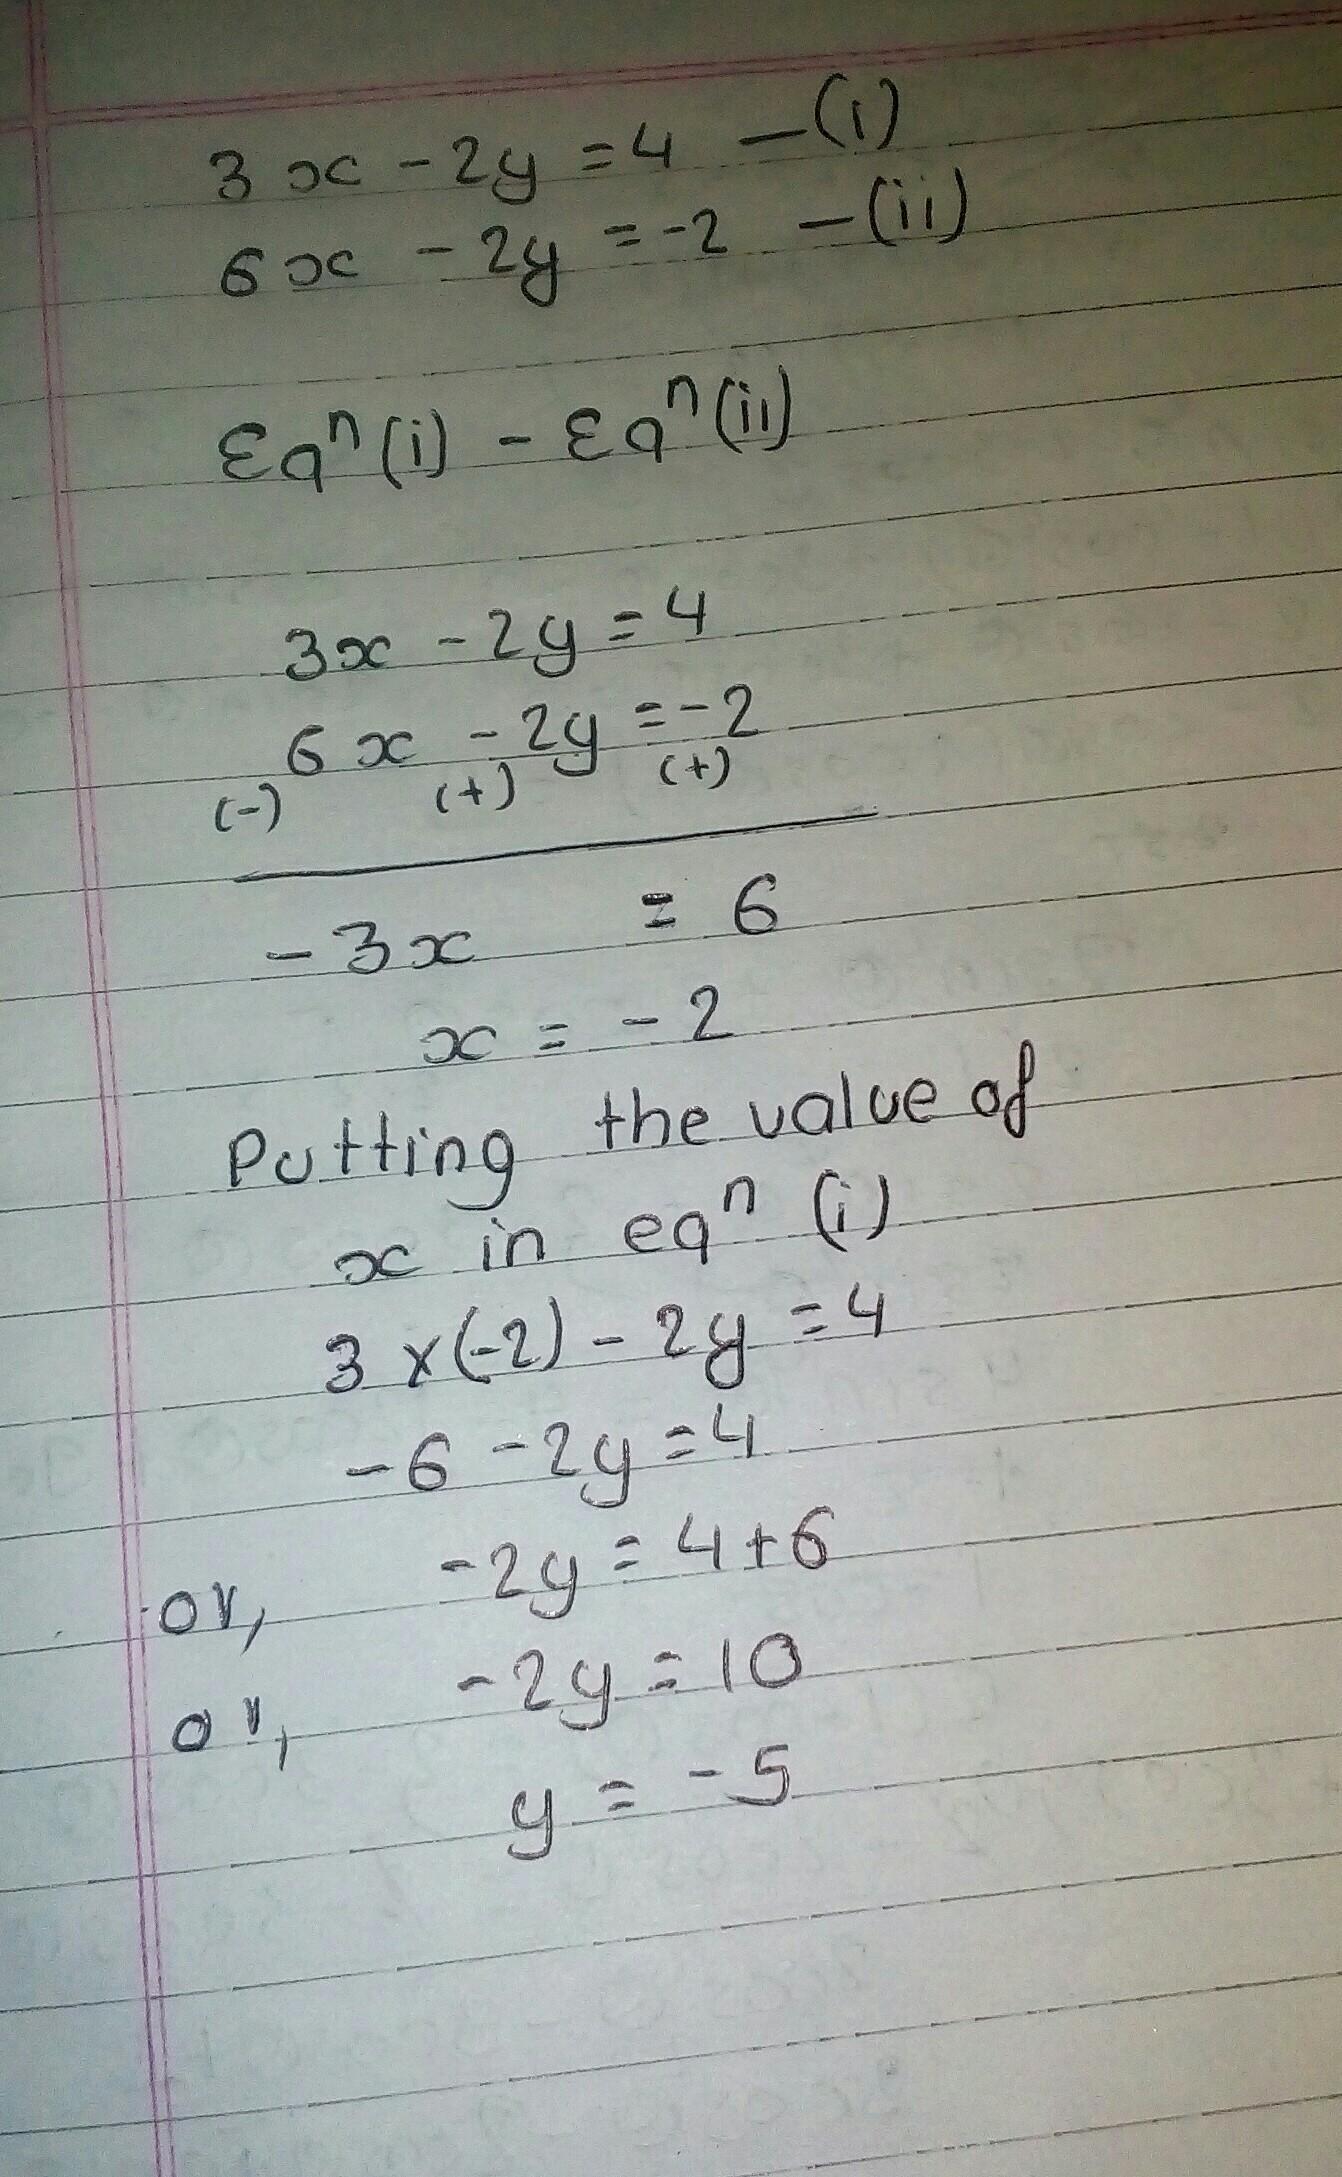 3x - 2y = 4 — (i)
6x - 2y = -2 — (ii)
Eqⁿ (i) - Eqⁿ (ii)
3x - 2y = 4
6x - 2y = -2
(-) (+) (+)
-3x = 6
x = -2
Putting the value of
x in eqⁿ (i)
3 x (-2) - 2y = 4
-6 - 2y = 4
or, -2y = 4+6
or, -2y = 10
y = -5